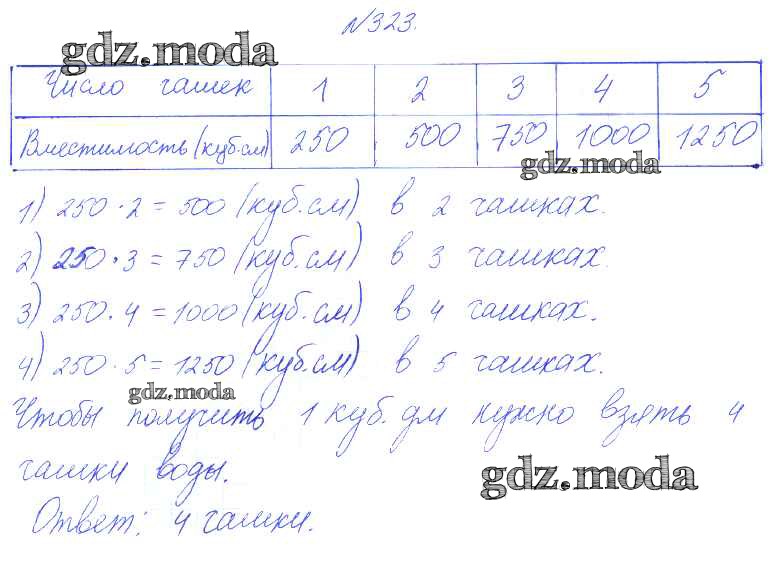 №323.
gdz.moda
Число чашек 1 2 3 4 5
Вместимость (куб.см) 250 500 750 1000 1250
gdz.moda
1) 250 · 2 = 500 (куб.см) в 2 чашках.
2) 250 · 3 = 750 (куб.см) в 3 чашках.
3) 250 · 4 = 1000 (куб.см) в 4 чашках.
4) 250 · 5 = 1250 (куб.см) в 5 чашках.
gdz.moda
Чтобы получить 1 куб. дм нужно взять 4
чашки воды.
gdz.moda
Ответ: 4 чашки.